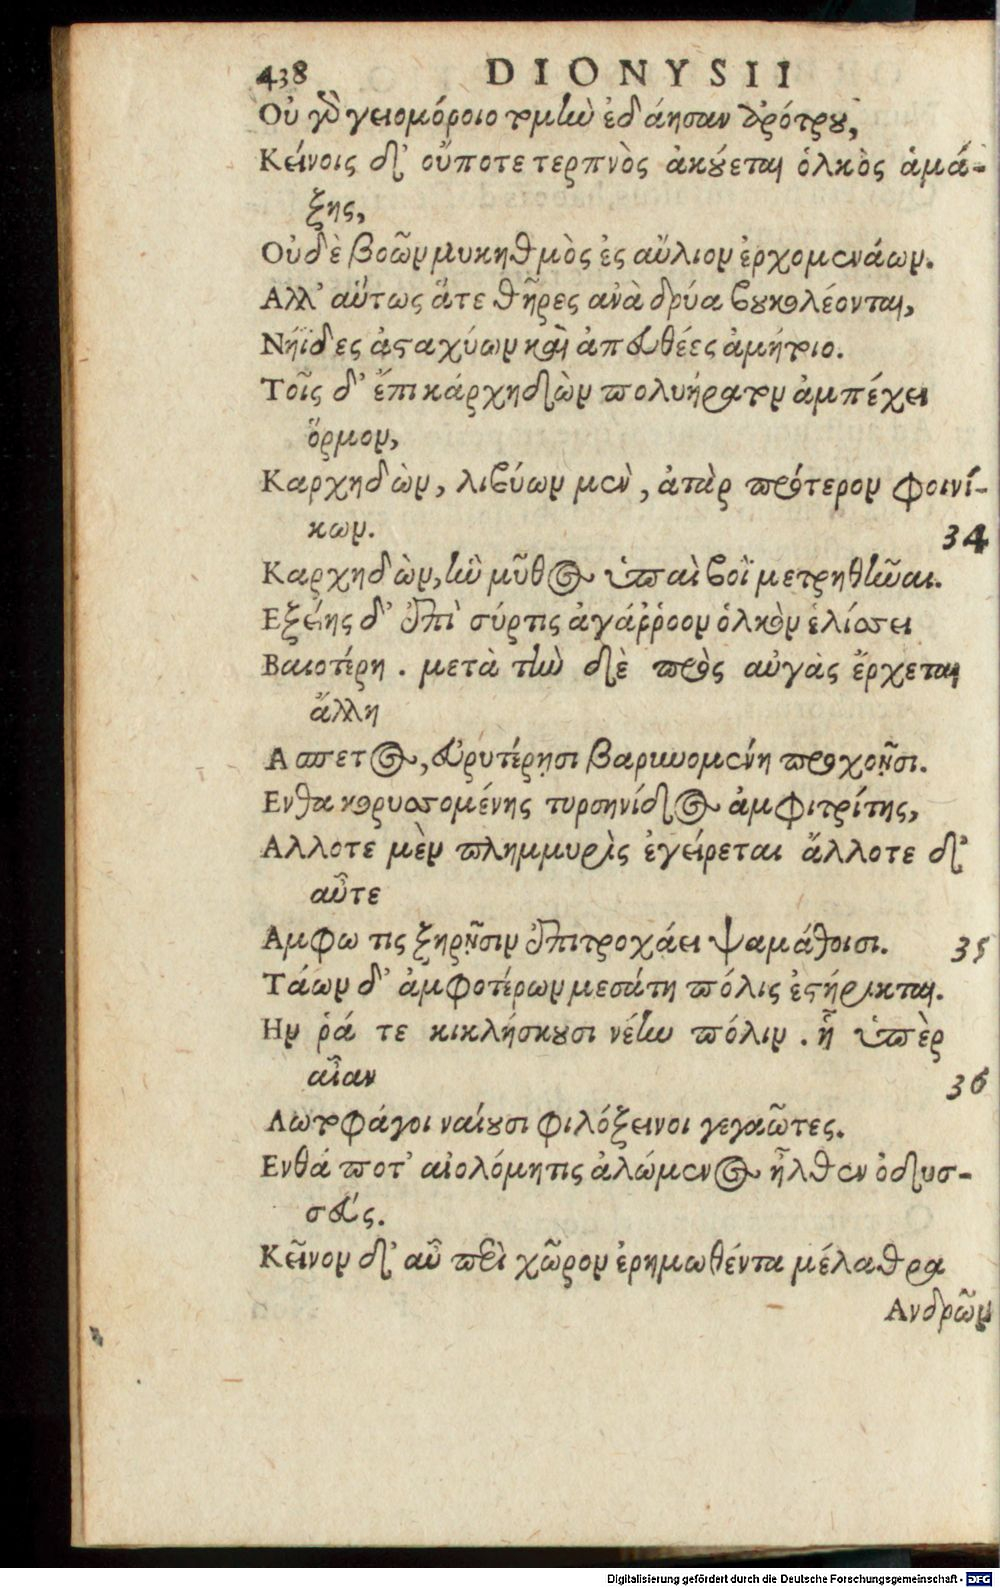 438 DIONYSII
Οὐ γὸ γειομόροιο τομὴν ἐδάησαν ἀρότρου,
Κείνοις δ' οὔποτε τερπνὸς ἀκούεται ὁλκὸς ἁμά-
ξης,
Οὐδὲ βοῶν μυκηθμὸς ἐς αὔλιον ἐρχομενάων.
Αλλ' αὔτως ἅτε θῆρες ἀνὰ δρύα βουκολέονται,
Νήϊδες ἀσταχύων καὶ ἀπευθέες ἀμήτοιο.
Τοῖς δ' ἔπι κάρχηδὼν πολυήρατον ἀμπέχει
ὅρμον,
Καρχηδὼν, λιβύων μὲν, ἀτὰρ πρότερον φοινί-
κων.
34
Καρχηδὼν, ἣν μῦθος ὑπαὶ βοῒ μετρηθῆναι.
Εξείης δ' ἐπὶ σύρτις ἀγάῤῥοον ὁλκὸν ἑλίσσει
Βαιοτέρη. μετὰ τὴν δὲ πρὸς αὐγὰς ἔρχεται
ἄλλη
Ασπετος, εὐρυτέρῃσι βαρυνομένη προχοῇσι.
Ενθα κορυσσομένης τυρσηνίδος ἀμφιτρίτης,
Αλλοτε μὲν πλημμυρὶς ἐγείρεται ἄλλοτε δ'
αὖτε
Αμφω τις ξηρῇσιν ἐπιτροχάει ψαμάθοισι. 35
Τάων δ' ἀμφοτέρων μεσάτη πόλις ἐστήρικται.
Ην ῥά τε κικλήσκουσι νέην πόλιν. ἧ ὑπὲρ
αἶαν
36
Λωτοφάγοι ναίουσι φιλόξεινοι γεγαῶτες.
Ενθά ποτ' αἰολόμητις ἀλώμενος ἦλθεν ὀδυσ-
σεύς.
Κεῖνον δ' αὖ περὶ χῶρον ἐρημωθέντα μέλαθρα
Ανδρῶν
Digitalisierung gefördert durch die Deutsche Forschungsgemeinschaft - DFG